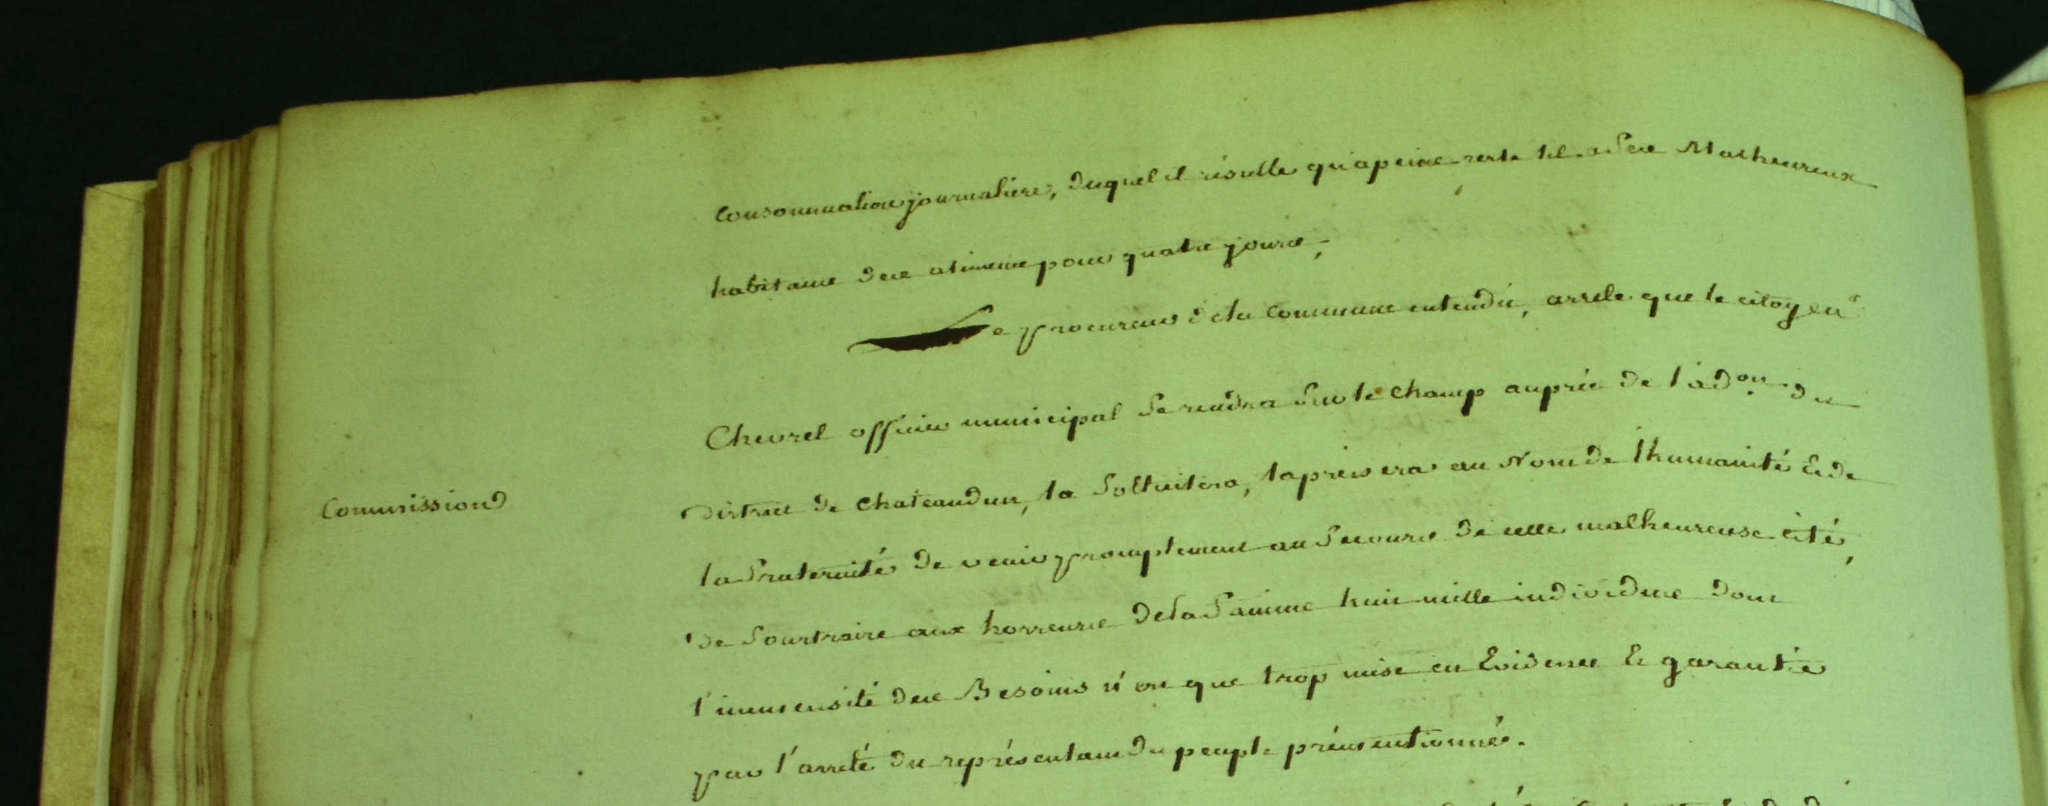 consommation journaliere, duquel il résulte qu'apeine reste til a ses Malheureux
habitans des alimens pour quatre jours,
Le procureur dela Commune entendu, arrete que le citoyen
Chevrel officier municipal se rendra sur le champ auprès de l'adon. du
Commission
district de chateaudun, la sollicitera, la pressera au Nom de l'humanité & de
la fraternité de venir promptement au secours de cette malheureuse cité,
de soustraire aux horreurs dela famine huit mille individus dont
l'immensité des Besoins n'est que trop mise en Evidence & garantie
par l'arreté du représentant du peuple prémentionné.